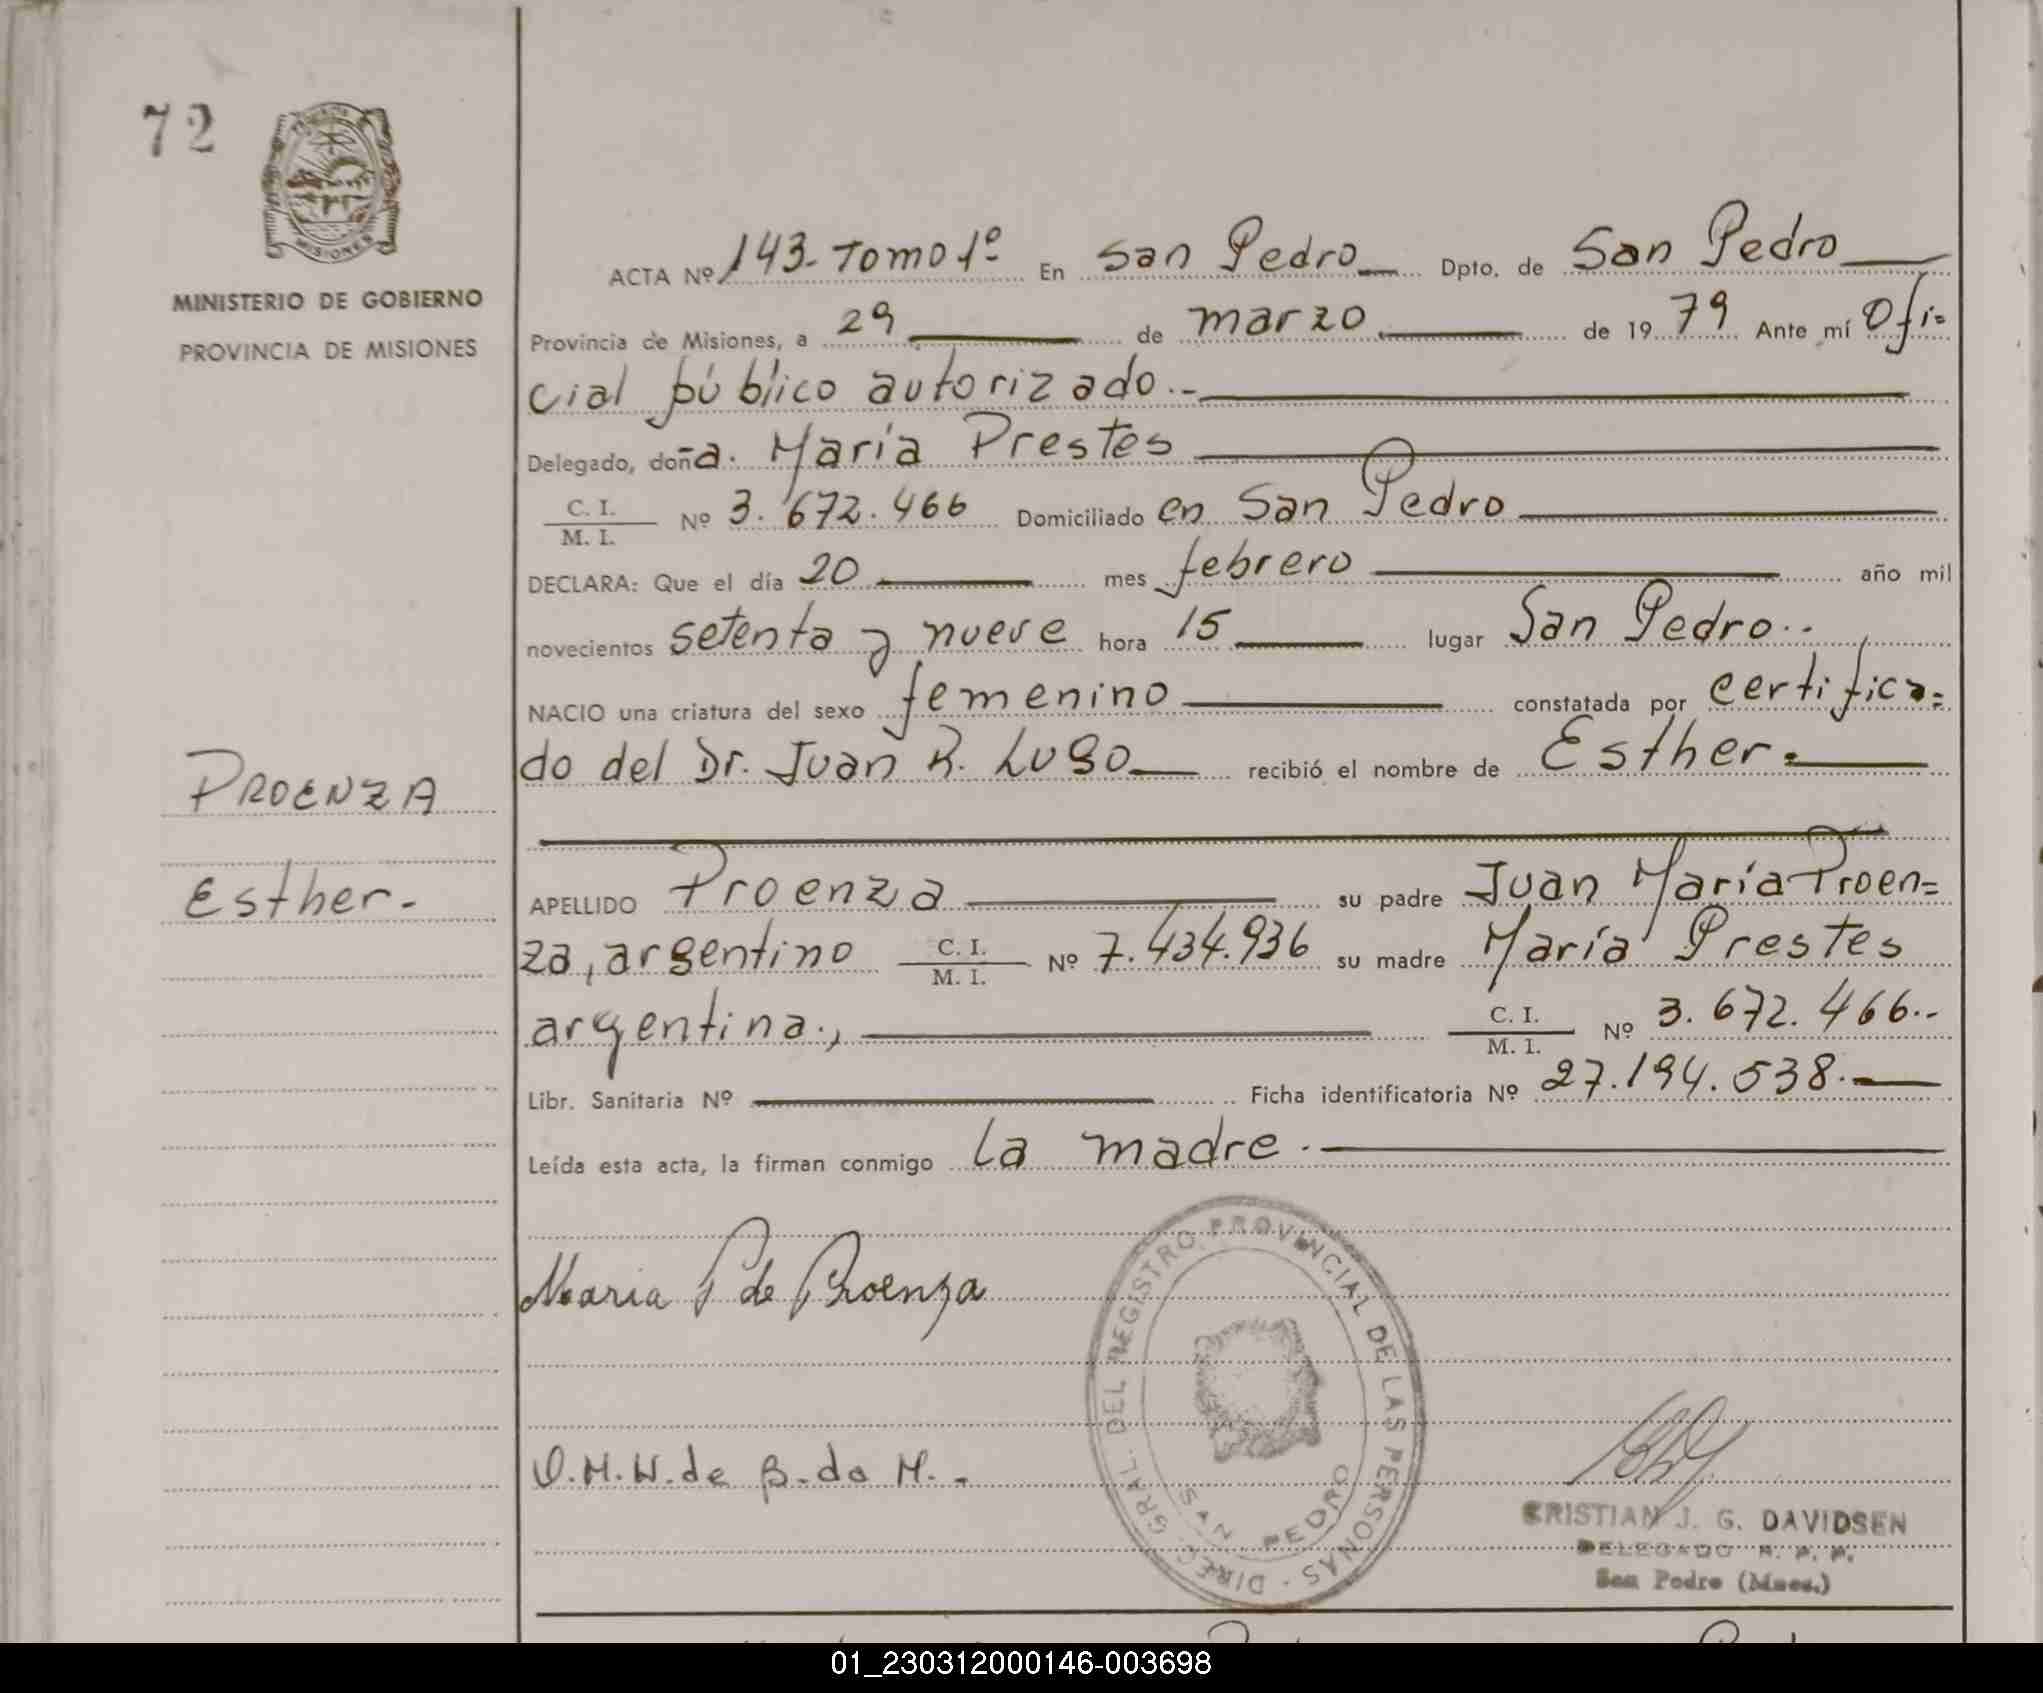 72
MISIONES
MINISTERIO DE GOBIERNO
PROVINCIA DE MISIONES
PROENZA
Esther.-
ACTA Nº 143-Tomo 1º En San Pedro Dpto. de San Pedro
Provincia de Misiones, a 29 de marzo de 1979 Ante mí Ofi=
cial público autorizado.-
Delegado, doña. María Prestes
C. I.
M. I. Nº 3.672.466 Domiciliado en San Pedro
DECLARA: Que el día 20 mes febrero año mil
novecientos setenta y nueve hora 15 lugar San Pedro..
NACIO una criatura del sexo femenino constatada por certifica=
do del Dr. Juan R. Lugo recibió el nombre de Esther.
APELLIDO Proenza su padre Juan María Proen=
za, argentino C. I. M. I. Nº 7.434.936 su madre María Prestes
argentina., C. I. M. I. Nº 3.672.466.-
Libr. Sanitaria Nº Ficha identificatoria Nº 27.194.538.-
Leída esta acta, la firman conmigo la madre.
Maria P de Proenza
O.M.W.de B.da M.-
DIREC. GRAL. DEL REGISTRO PROVINCIAL DE LAS PERSONAS - SAN PEDRO
CRISTIAN J. G. DAVIDSEN
DELEGADO R. P. P.
San Pedro (Mnes.)
01_230312000146-003698